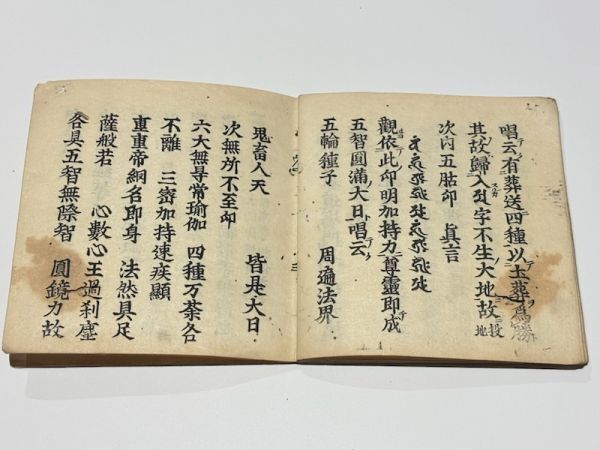 唱云有葬送四種以土葬爲勝
其故歸入字不生大地故投地
次内五胋印　眞言
觀依此印明加持力尊靈即成
五智圓滿大日唱云
五輪種子　周遍法界
鬼畜人天　皆是大日
次無所不至印
六大無㝵常瑜伽　四種万荼各
不離　三密加持速疾顯
重重帝網名即身　法然具足
薩般若　心數心王過刹塵
各具五智無際智　圓鏡力故